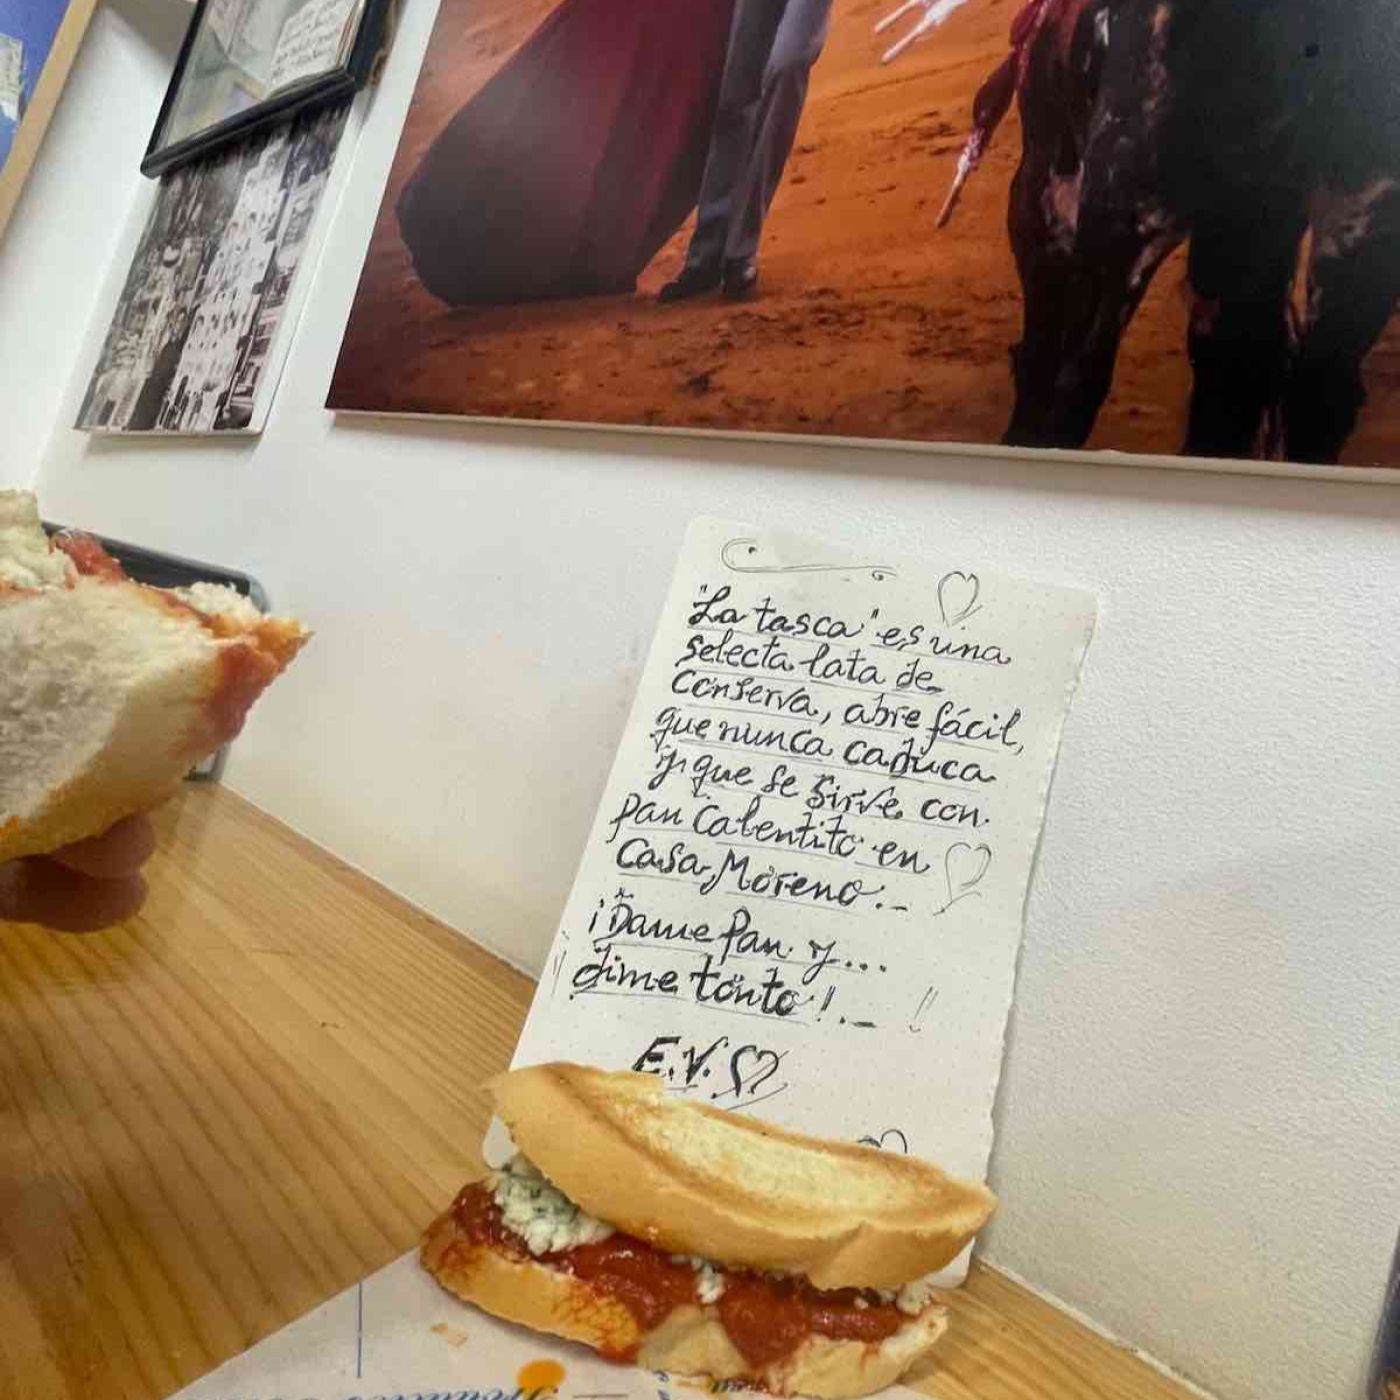 "La tasca" es una
selecta lata de
Conserva, abre fácil,
que nunca caduca
y que se sirve con
pan calentito en
Casa Moreno.-
¡Dame pan y...
dime tonto!.-
E.V.